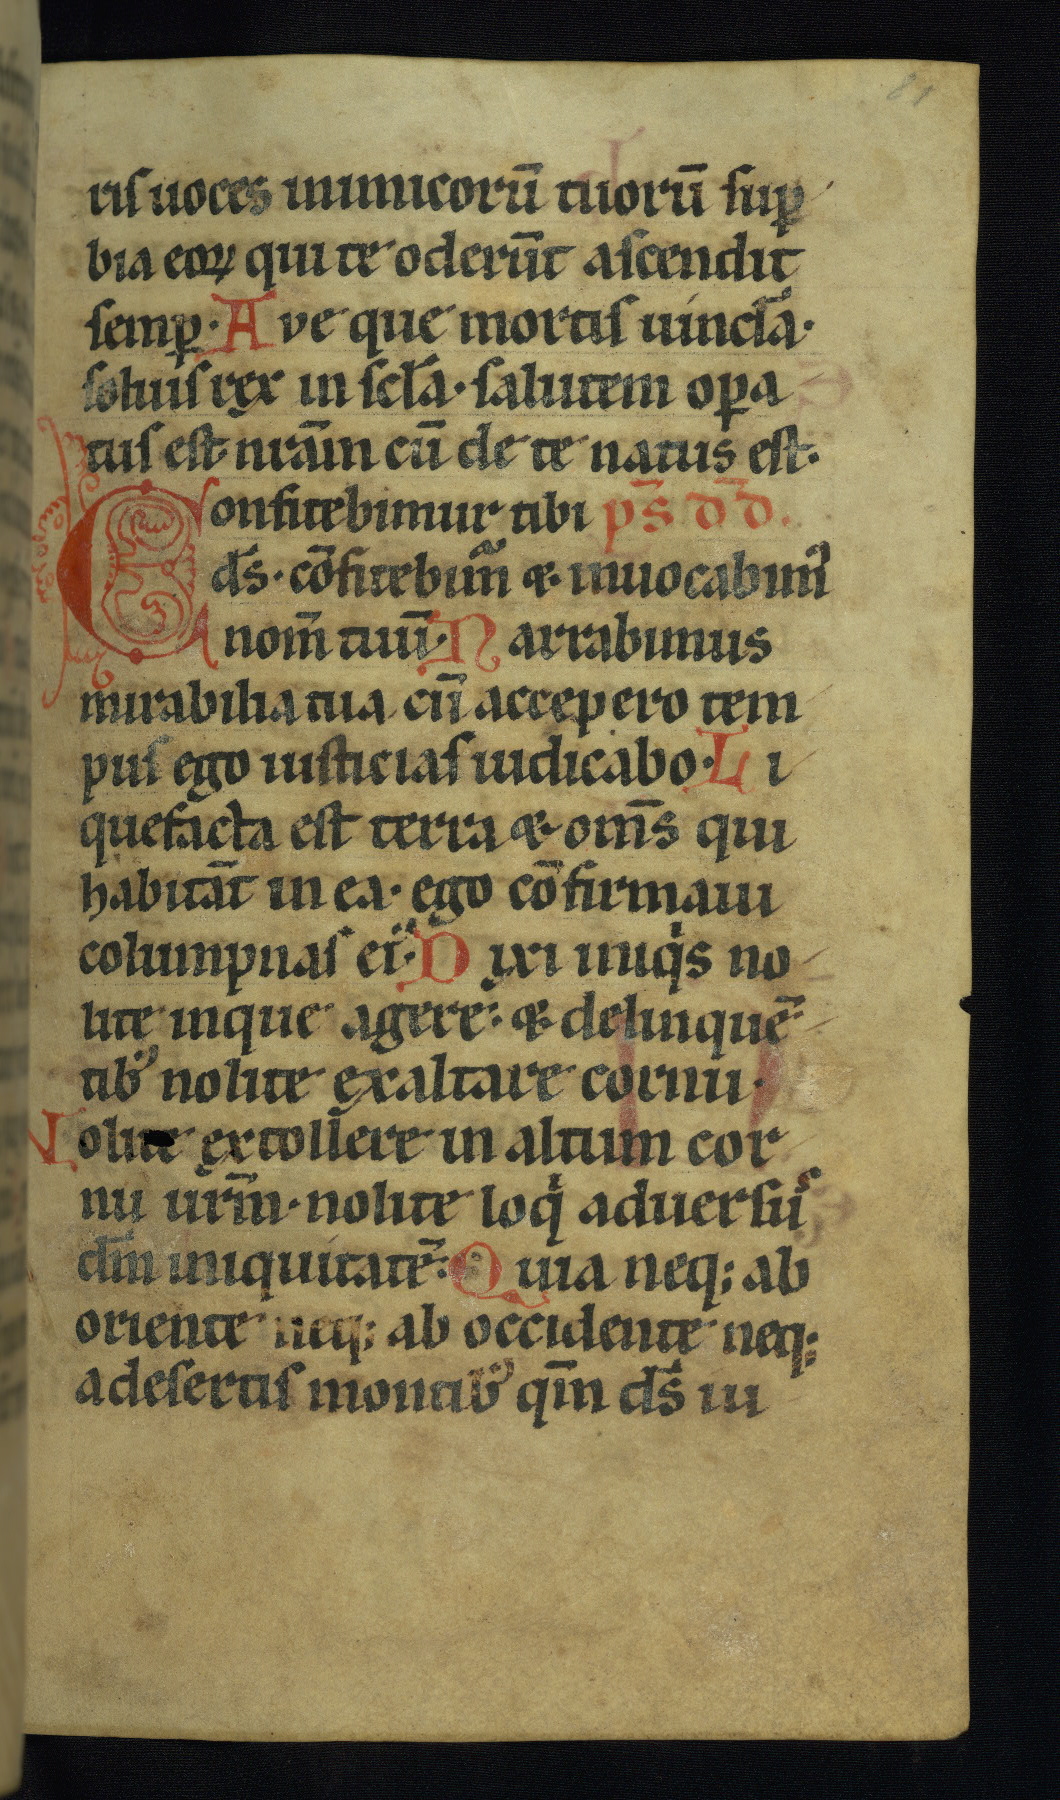 81
ris uoces inimicorū tuorū sup̱
bia eoꝝ qui te oderūt ascendit
semp̱· Ave que mortis uincl̄a·
soluis rex in scl̄a· salutem op̱a
tus est nr̄am cū de te natus est·
Confitebimur tibi p̄s d̄d.
ds̄· cōfitebim᷑ & inuocabim᷒
nom̄ tuū· Narrabimus
mirabilia tua cū accepero tem
pus ego iusticias iudicabo· Li
quefacta est terra & om̄s qui
habitāt in ea· ego cōfirmaui
columpnas ei᷒· Dixi iniqͥs no
lite inique agere: & delinquē
tibꝰ nolite exaltare cornu·
Nolite extollere in altum cor
nu ur̄m· nolite loqͥ aduersus
dm̄ iniquitatē: Quia neq; ab
oriente neq; ab occidente neq;
a desertis montibꝰ qm̄ ds̄ iu